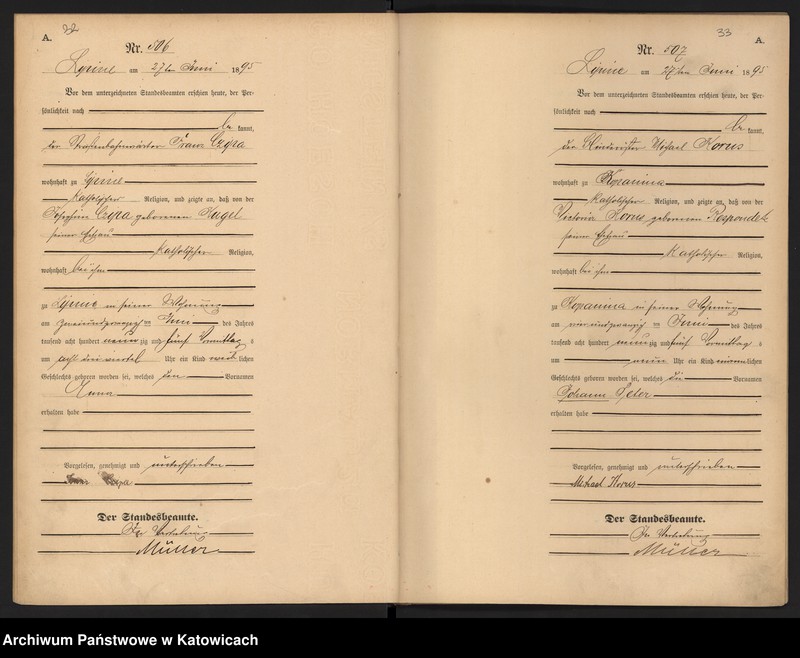 A. 32
Nr. 506
Lipine am 27ten Juni 1895
Vor dem unterzeichneten Standesbeamten erschien heute, der Per-
sönlichkeit nach
be kannt,
der Franz Czyra
wohnhaft zu Lipine
katholischer Religion, und zeigte an, daß von der
Josephine Czyra geborenen Kugel
seiner Ehefrau
katholischer Religion,
wohnhaft bei ihm
zu Lipine in seiner Wohnung
am zweiundzwanzigsten Juni des Jahres
tausend acht hundert neunzig und fünf Vormittag s
um acht drei viertel Uhr ein Kind weiblichen
Geschlechts geboren worden sei, welches den Vornamen
Anna
erhalten habe
Vorgelesen, genehmigt und unterschrieben
Franz Czyra
Der Standesbeamte.
In Vertretung
Müller
33 A.
Nr. 507
Lipine am 27ten Juni 1895
Vor dem unterzeichneten Standesbeamten erschien heute, der Per-
sönlichkeit nach
be kannt,
der Michael Korus
wohnhaft zu Kopanina
katholischer Religion, und zeigte an, daß von der
Victoria Korus geborenen Respondek
seiner Ehefrau
katholischer Religion,
wohnhaft bei ihm
zu Kopanina in seiner Wohnung
am vierundzwanzigsten Juni des Jahres
tausend acht hundert neunzig und fünf Vormittag s
um neun Uhr ein Kind männlichen
Geschlechts geboren worden sei, welches die Vornamen
Johann Peter
erhalten habe
Vorgelesen, genehmigt und unterschrieben
Michael Korus
Der Standesbeamte.
In Vertretung
Müller
Archiwum Państwowe w Katowicach